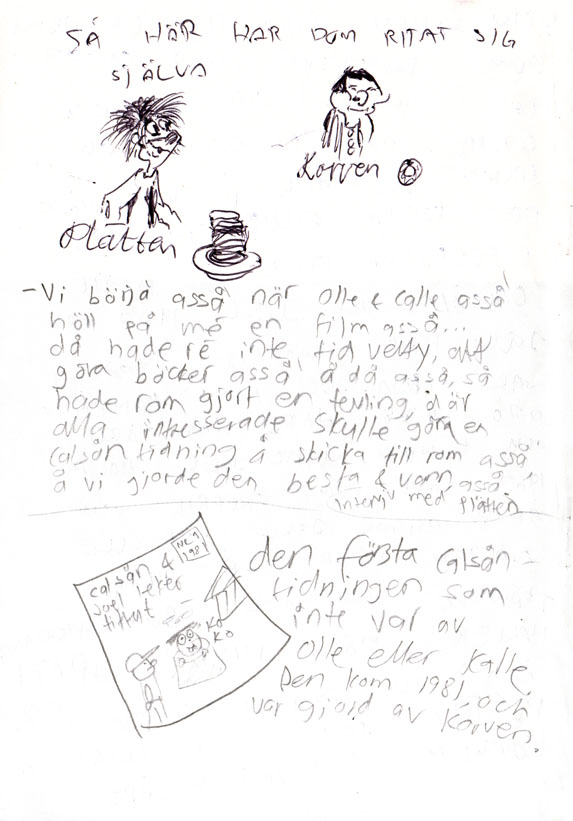 SÅ HÄR HAR DOM RITAT SIG
SJÄLVA
Korven
Plätten
- Vi börja asså när olle & calle asså
höll på mé en film asså...
då hade ré inte tid vetty, att
göra böcker asså å då asså, så
hade rom gjort en tevling, där
alla intresserade skulle göra en
calsån tidning å skicka till rom asså
å vi gjorde den besta & vann asså.
Interv med plätten
NR 1
1981
calsån &
joel leker
tittut
KO
KO
den första calsån-
tidningen som
inte var av
olle eller kalle.
Den kom 1981 och
var gjord av Korven.